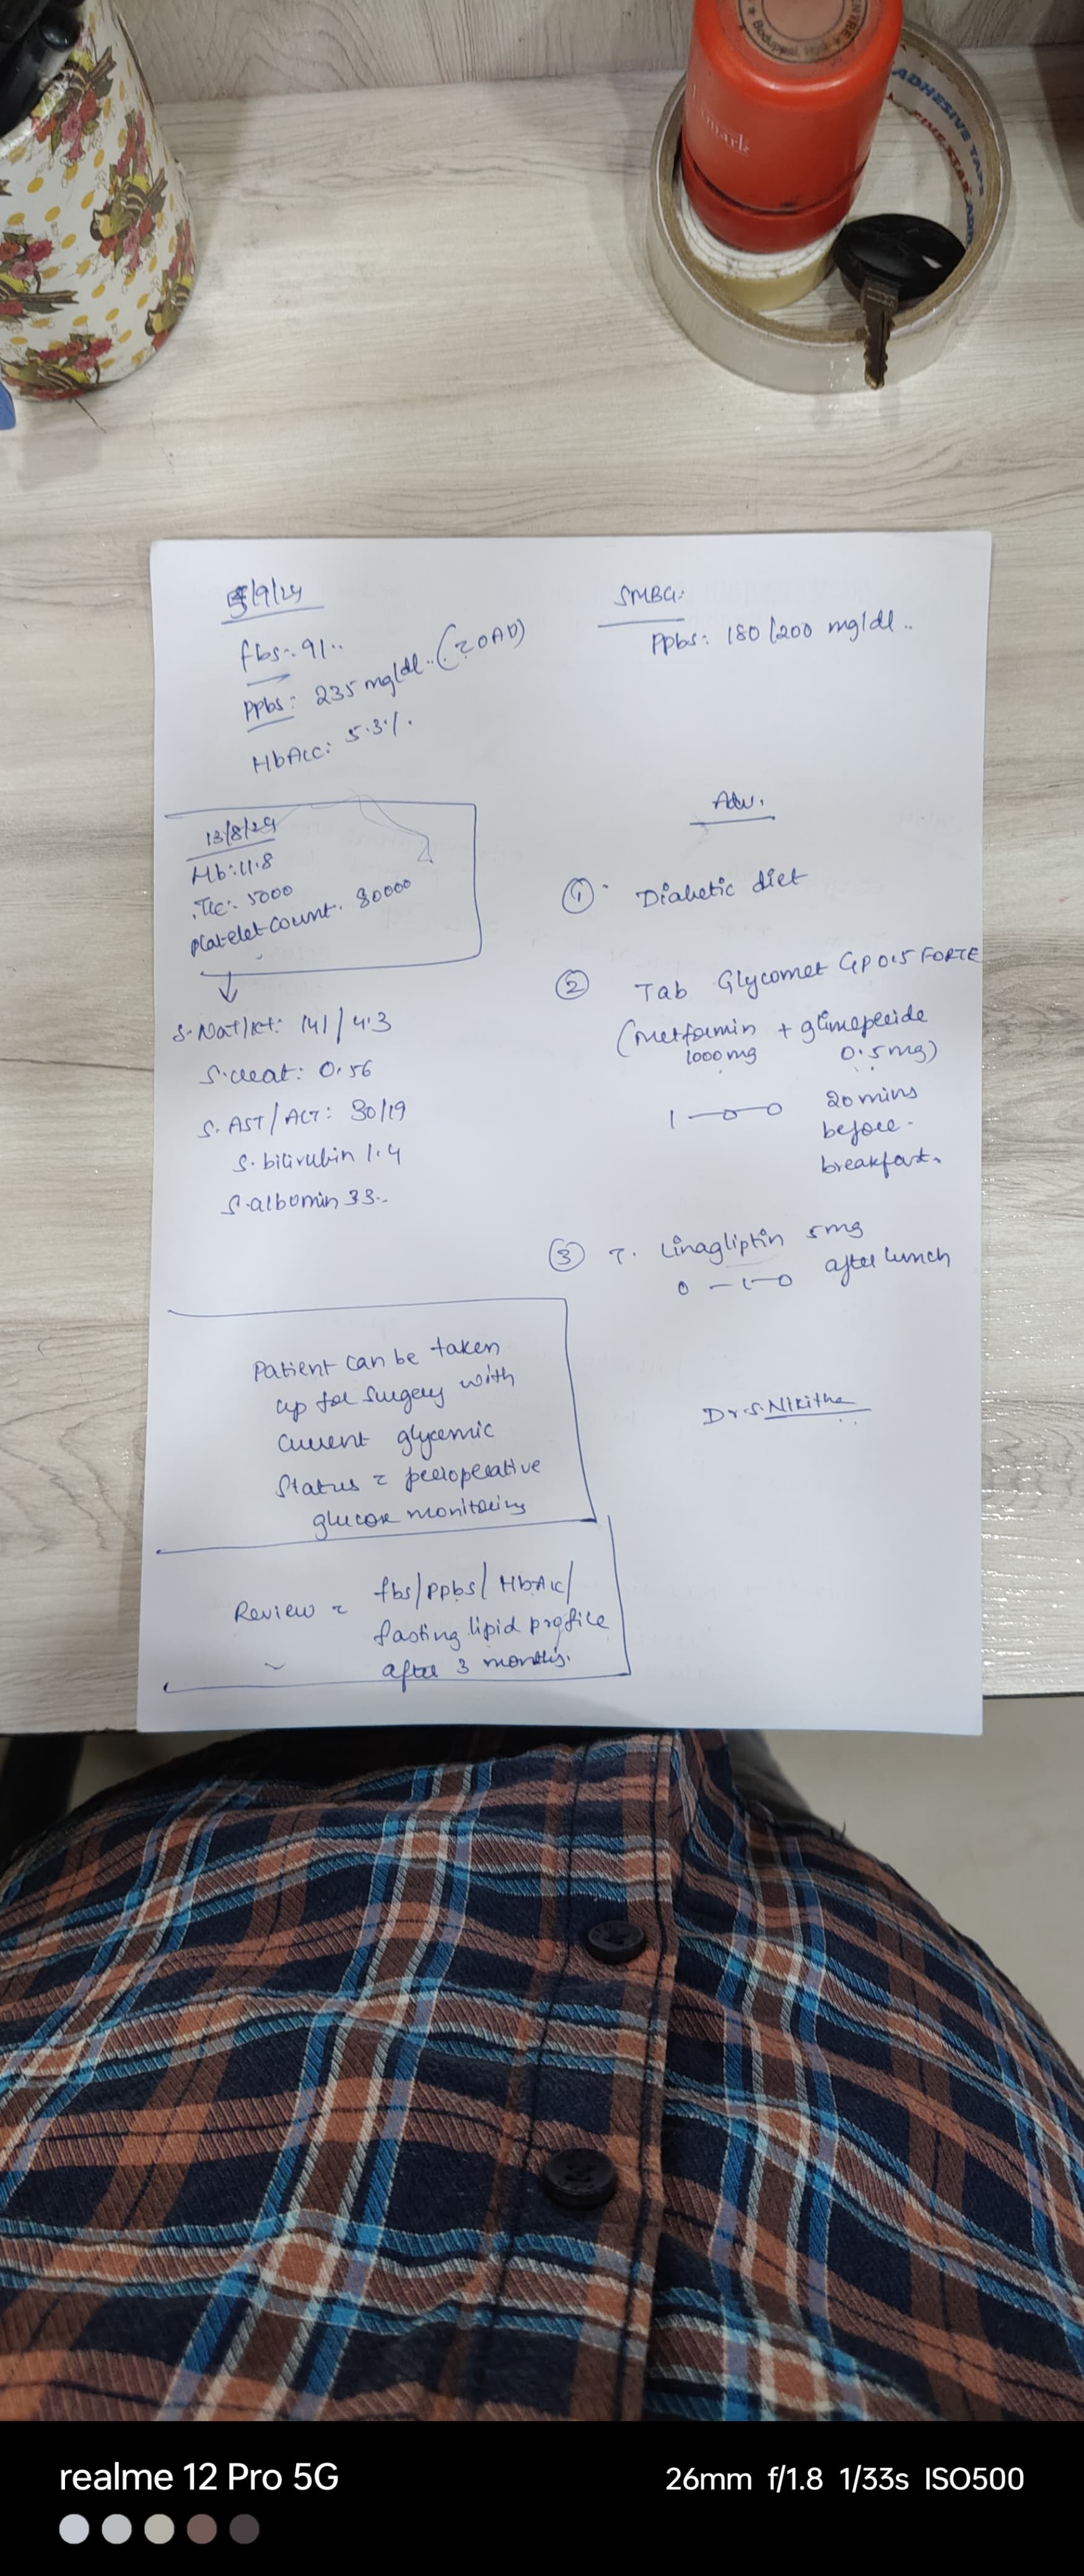 ADHESIVE TAPE
5/9/24
fbs: 91..
ppbs: 235 mg/dl.. (c̄ OAD)
HbA1c: 5.3%.
SMBG:
PPbs: 180/200 mg/dl..
13/8/24
Hb: 11.8
TLC: 5000
platelet count. 80000
S. Na+/K+: 141/4.3
S. creat: 0.56
S. AST/ALT: 30/19
S. bilirubin 1.4
S. albumin 3.3..
Patient can be taken
up for surgery with
current glycemic
status c̄ perioperative
glucose monitoring
Review c̄ fbs/PPbs/HbA1c/
fasting lipid profile
after 3 months.
Adv.
① Diabetic diet
② Tab Glycomet GP 0.5 FORTE
(Metformin + glimepiride
1000 mg 0.5 mg)
1—0—0 20 mins
before
breakfast.
③ T. Linagliptin 5mg
0—1—0 after lunch
Dr. S. Nikitha
realme 12 Pro 5G
26mm f/1.8 1/33s ISO500